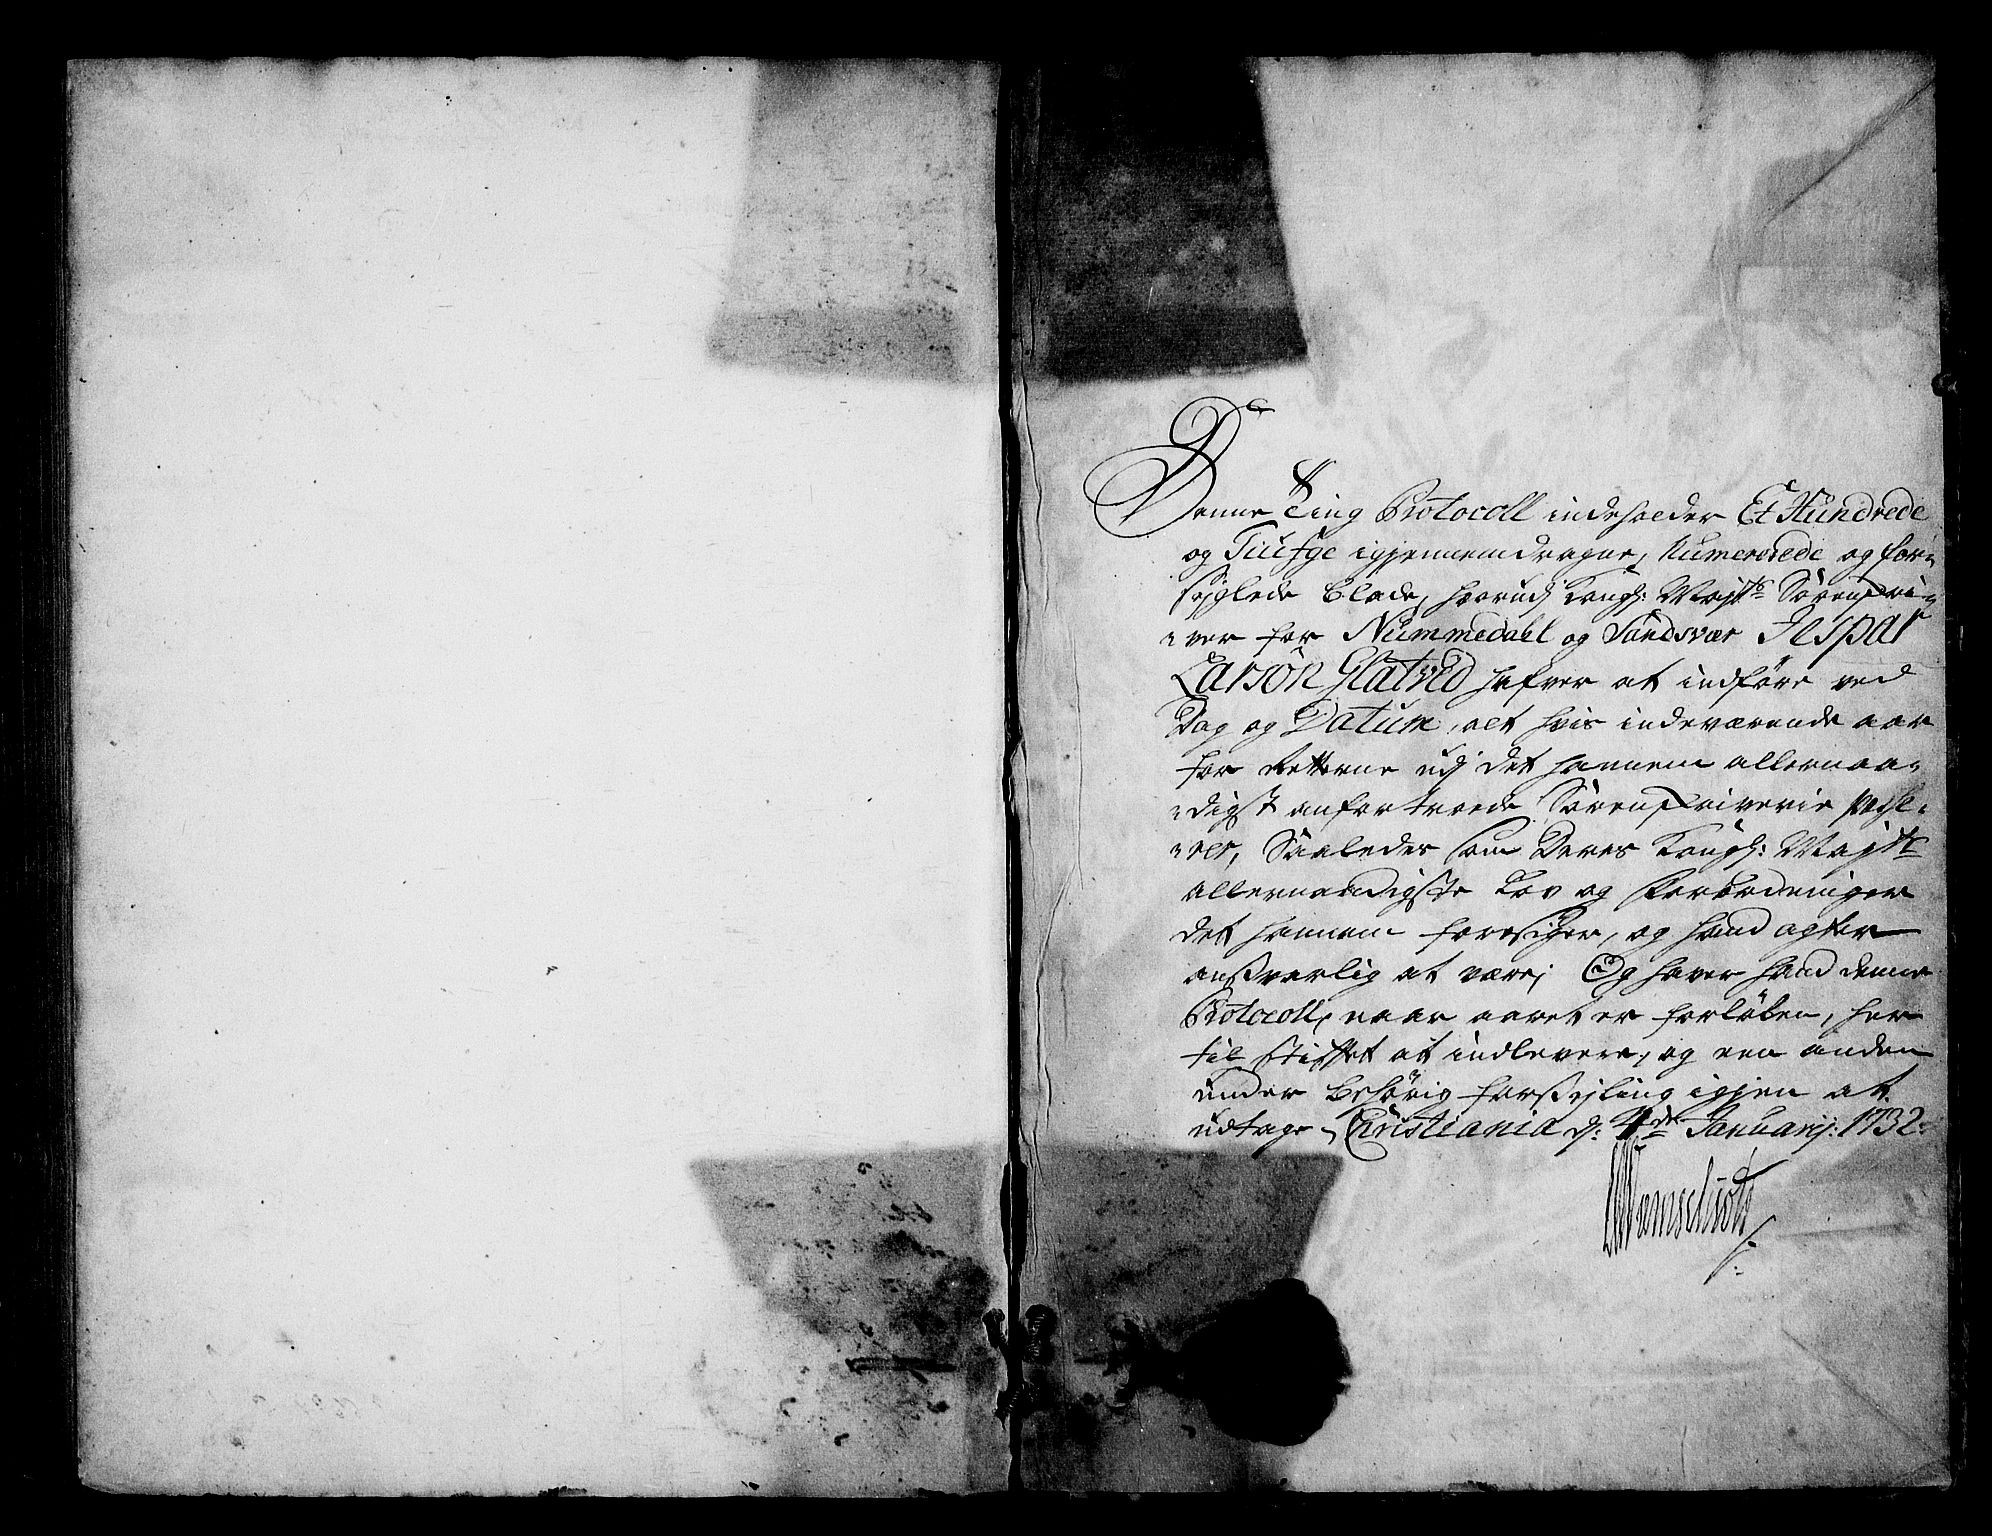 Denne Ting Protocoll indeholder Et Hundrede
og Tiufge igjennemdragne, Numererede og for-
sejglede Blade, hvorudj Kongl: Majts Sorenskri-
-ver for Nummedahl og Sandsvær Jespar
Larsön Glatved hafver at indföre ved
Dag og Datum, alt hvis indeværende aar
for Retterne udj det hannem allernaa-
-digst anfortroede Sorenskriverie passe-
-rer, Saaledes som Deres Kongl: Majts
allernaadigste Lov og Forordninger
det hannem foresiger, og hand agter
ansvarlig at være; Og haver hand denne
Protocoll, naar aaret er forlöben, her
til Stiftet at indlevere, og een anden
under behörig forsejling igjen at
udtage, Christiania d: Januarij: 1732: